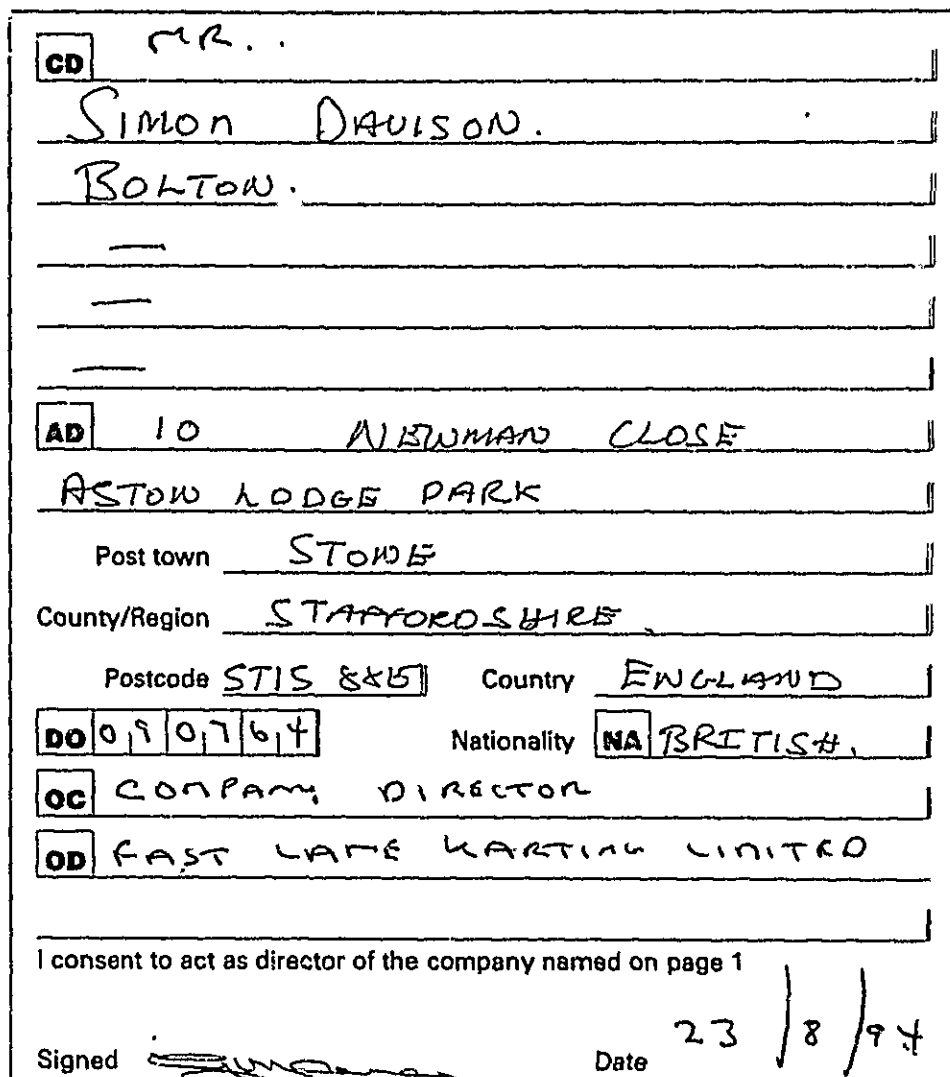 CD MR..
SIMON DAVISON.
BOLTON.
—
—
—
AD 10 NEWMAN CLOSE
ASTON LODGE PARK
Post town STONE
County/Region STAFFORDSHIRE
Postcode ST15 Country ENGLAND
DO 090764 Nationality NA BRITISH.
OC COMPANY DIRECTOR
OD FAST LANE KARTING LIMITED
I consent to act as director of the company named on page 1
Signed Date 23/8/94